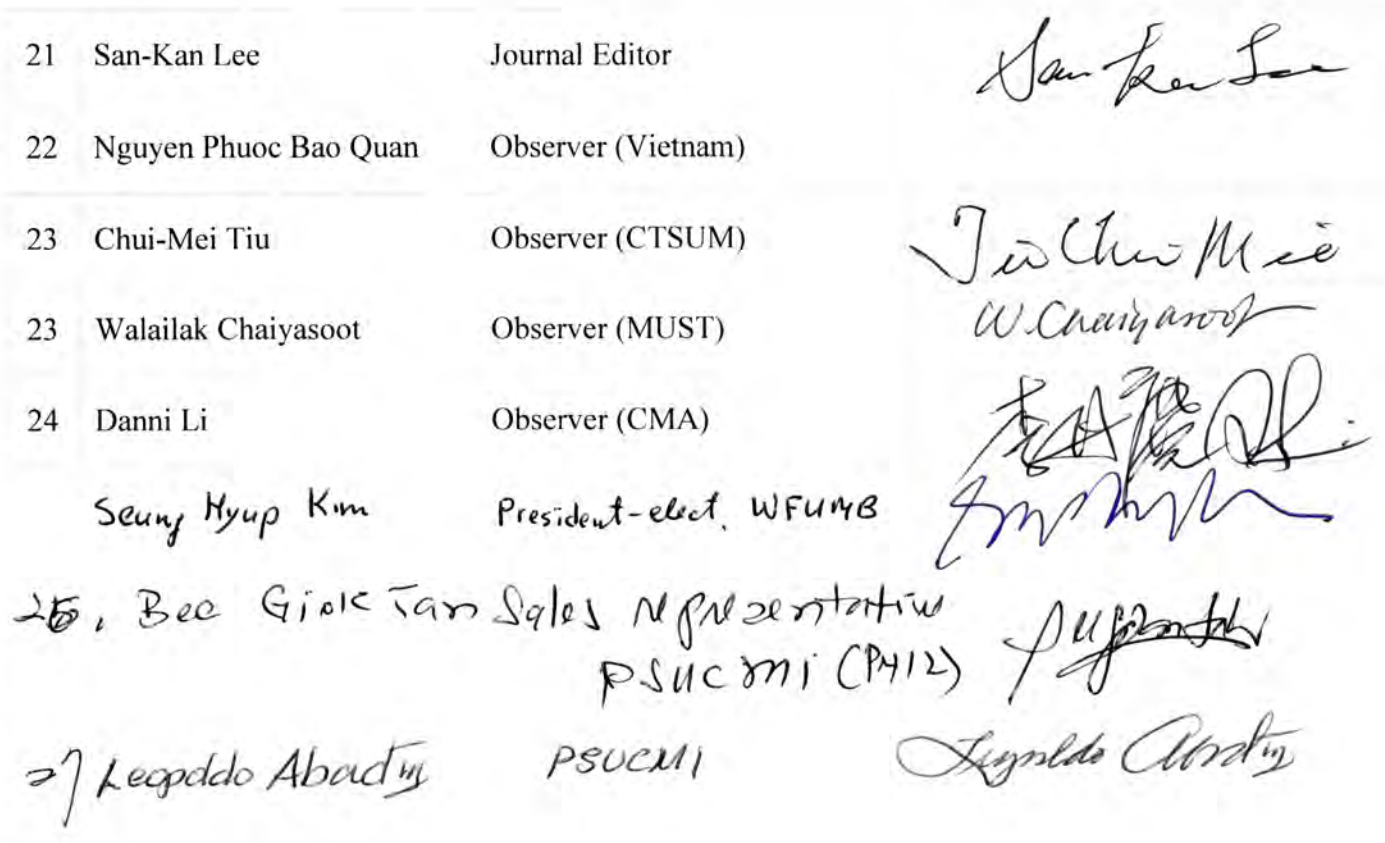 21 San-Kan Lee Journal Editor San Kan Lee
22 Nguyen Phuoc Bao Quan Observer (Vietnam)
23 Chui-Mei Tiu Observer (CTSUM) Tiu Chui Mei
23 Walailak Chaiyasoot Observer (MUST) W. Chaiyasoot
24 Danni Li Observer (CMA)
Seung Hyup Kim President-elect, WFUMB
26, Bee Giok Tan Sales representative
PSUCMI (PHIL)
27 Leopoldo Abadin PSUCMI Leopoldo Abadin